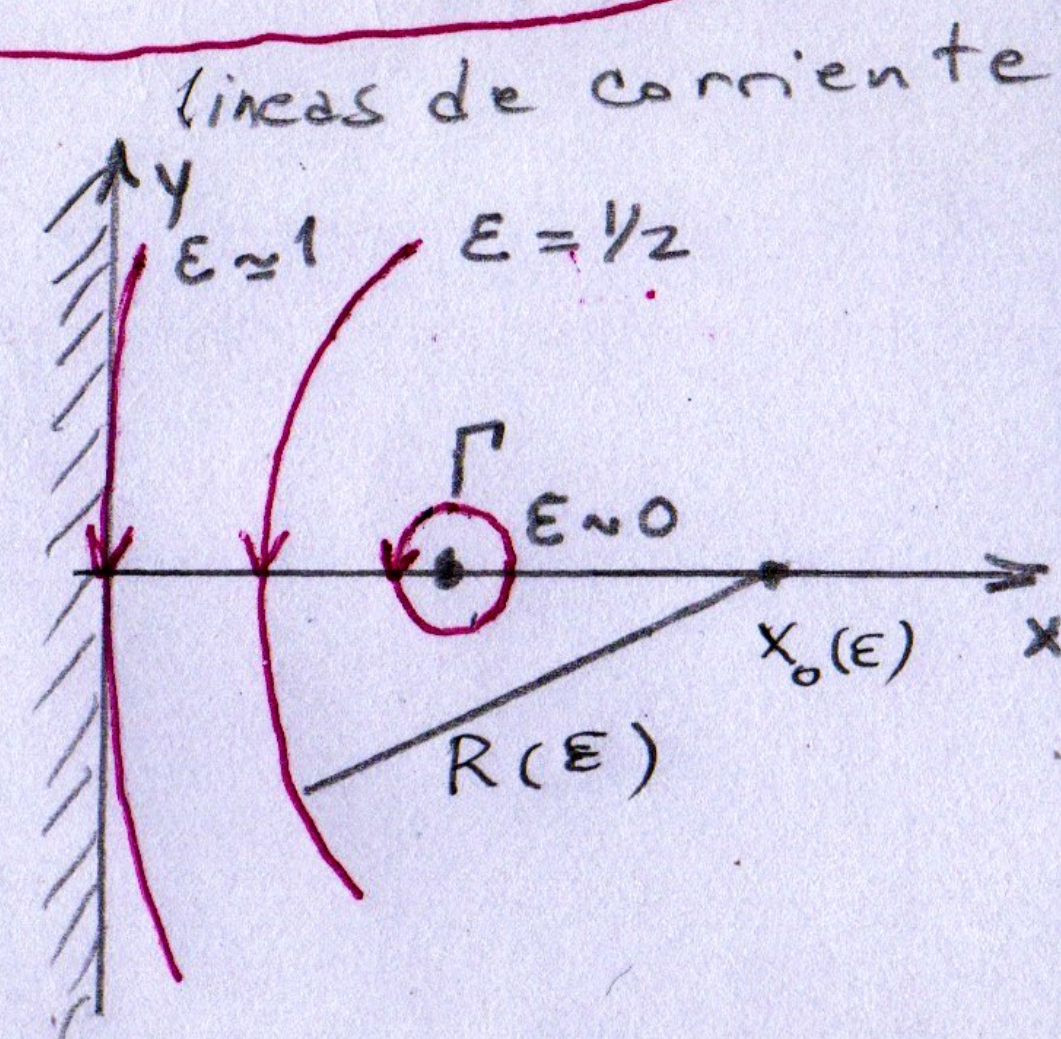 lineas de corriente
y
ε ≃ 1
ε = 1/2
Γ
ε ~ 0
X₀(ε)
X
R(ε)